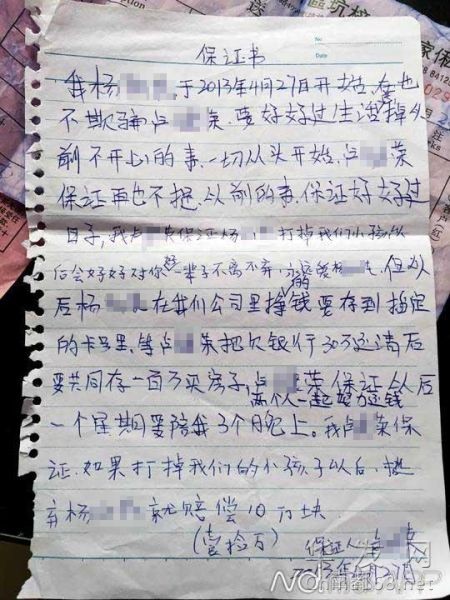 保证书
No.
Date
我杨 于2013年4月27日开始,在也
不欺骗卢 荣.要好好过生活,掉从
前不开心的事.一切从头开始.卢 荣
保证再也不提.从前的事.保证好好过
日子,我卢 荣保证杨 打掉我们小孩以
后会好好对你好一辈子不离不弃.永远的爱杨 .但从
后杨 在我们公司里挣钱要存到指定
的卡号里.等卢 荣把欠银行30万还清后
要共同存一百万买房子,卢 荣保证从后
两个人一起努力还钱
一个星期要陪我3个晚上。我卢 荣保
证.如果打掉我们的小孩子以后.抛
弃杨 就赔偿10万块.
(壹拾万)
保证人 荣
2013年